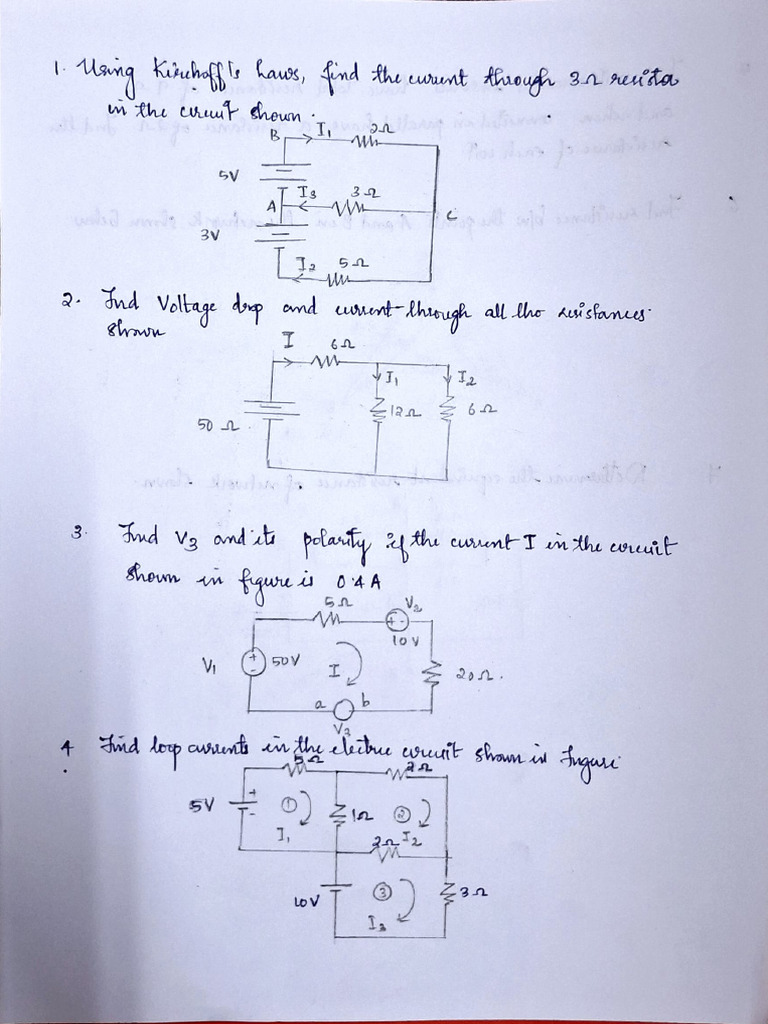 1. Using Kirchoff's Laws, find the current through 3Ω resistor
in the circuit shown.
B I1 2Ω
5V
A I3 3Ω
C
3V
I2 5Ω
2. Find Voltage drop and current through all the resistances
shown
I 6Ω
I1 I2
12Ω 6Ω
50Ω
3. Find V3 and its polarity if the current I in the circuit
shown in figure is 0.4A
5Ω V2
+ -
10V
V1 + - 50V I 20Ω.
a b
V3
4 Find loop currents in the electric circuit shown in figure
5Ω 2Ω
5V + - 1 1Ω 2
I1 2Ω I2
10V 3 3Ω
I3